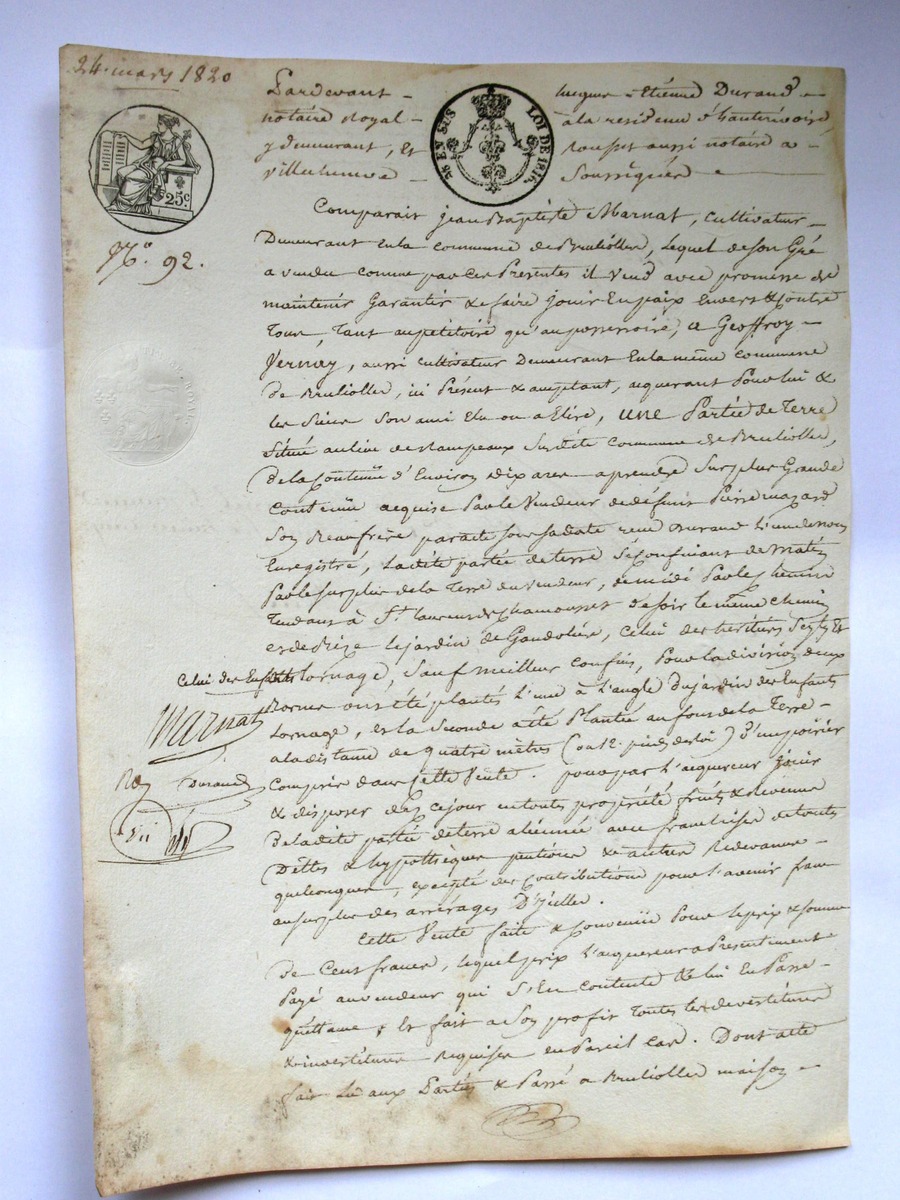 24 mars 1820
Pardevant - hugue Etiènne Durand -
notaire Royal - à la residence d'hauterivoire,
y demeurant, Et rouset aussi notaire a -
villechenève - Soussignés -
EN SUS LOI DE 1816.
25c
N.o 92.
Comparait jean Baptiste Marnat, cultivateur -
Demeurant En la commune de Brulliolles, lequel de son Gré
a vendu comme par ces Presentes il vend avec promesse de
maintenir Garantir & faire jouir En paix Envers & Contre
Tous, Tant au petitoire qu'au possessoire, a Geoffroy -
Vernay, aussi cultivateur Demeurant En la même commune
de Brulliolles, ici Présent & acceptant, aquerant Pour lui &
les Siens Son ami Elu ou a Elire, une Partie de Terre
Située au lieu des Lampeaux Surdite commune de Brulliolles,
De la Contenüe d'Environ dix ares a prendre Sur plus Grande
Contenüe acquise Par le Vendeur de défunt Pierre mazard
Son Beaufrère par acte sous sa date reçu Durand L'un de nous
Enregistré, Ladite partie de terre Se Confinant de matin
Par le surplus de la Terre du vendeur, de midi Par le chemin
Tendant à St. laurent de Chamousset de soir le même chemin
et de Bize le jardin de Gandolière, celui des heritiers Et
Celui des Enfants
Lornage, Sauf meilleur confins, Pour la division deux
Bornes ont été plantés L'une à L'angle Du jardin des Enfants
Lornage, et la Seconde a été Plantée au fond de la Terre -
a la distance de quatre mètres (ou 12. pieds de roi) D'un poirier
Compris dans Cette Vente. pour par L'aquereur jouir
& disposer dez ce jour en toute propriété fruits & Revenus
De la dite partie de terre aliennée avec franchise de toutes
Dettes & hypothèques pensions & autres Redevances -
quelconques, excepté des Contributions pour l'avenir franc
au surplus des arrérages D'Icelles.
Marnat
Durand
Cette Vente faite & Convenüe Pour le prix & somme
de Cent francs, lequel prix L'aquereur a Présentement
Payé au vendeur qui S'En contente & lui En Passe -
quittance, & fait a Son profit Toutes les devestitures
& investitures Requises en Pareil Cas. Dont acte
fait Lu aux Parties & Passé a Brulliolles maison -